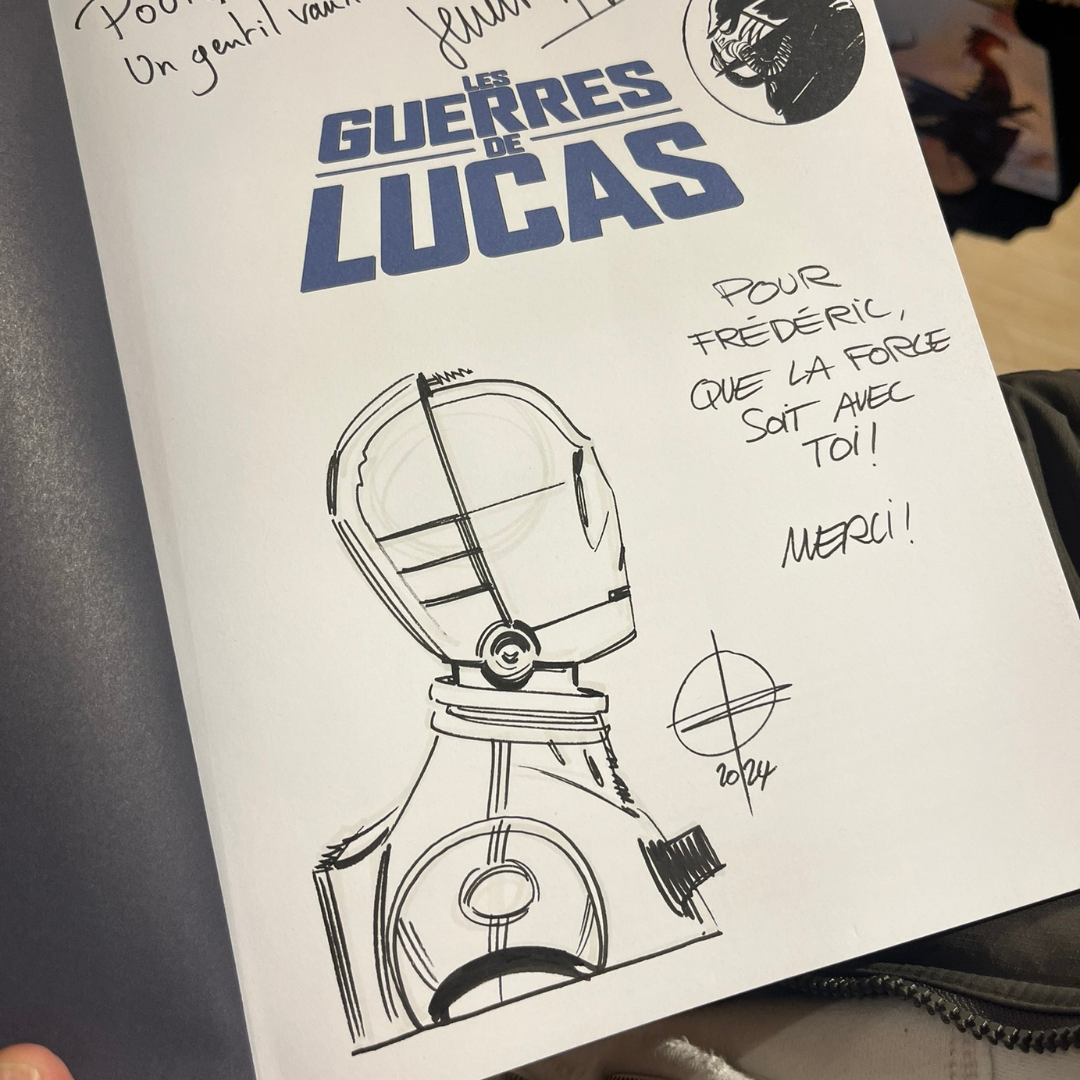 Pour
Un gentil
LES
GUERRES
DE
LUCAS
POUR
FRÉDÉRIC,
QUE LA FORCE
SOIT AVEC
TOI!
MERCI!
2024